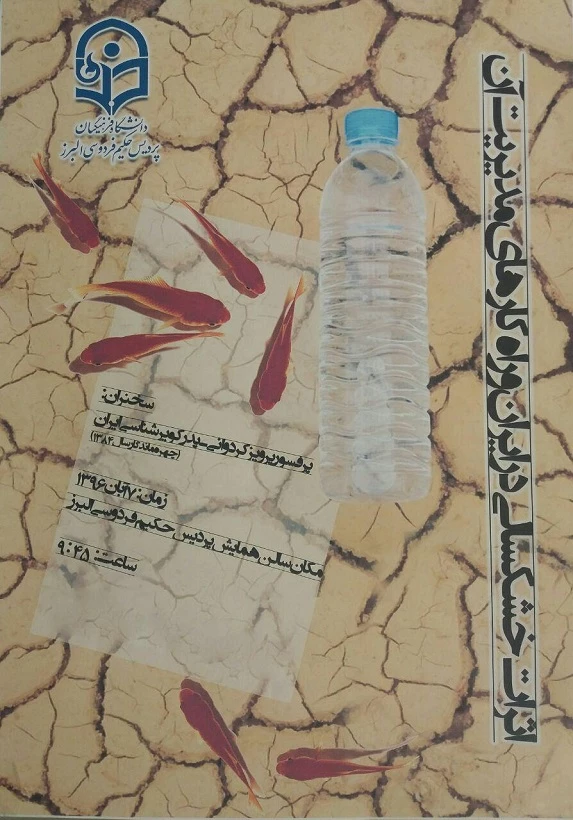 دانشگاه فرهنگیان
پردیس حکیم فردوسی البرز
اثرات خشکسالی در ایران و راه کارهای مدیریت آن
سخنران:
پرفسور پرویز کردوانی-پدر کویرشناسی ایران
(چهره ماندگار سال ۱۳۸۴)
زمان: ۱۷ آبان ۱۳۹۶
مکان سالن همایش پردیس حکیم فردوسی البرز
ساعت: ۹:۴۵